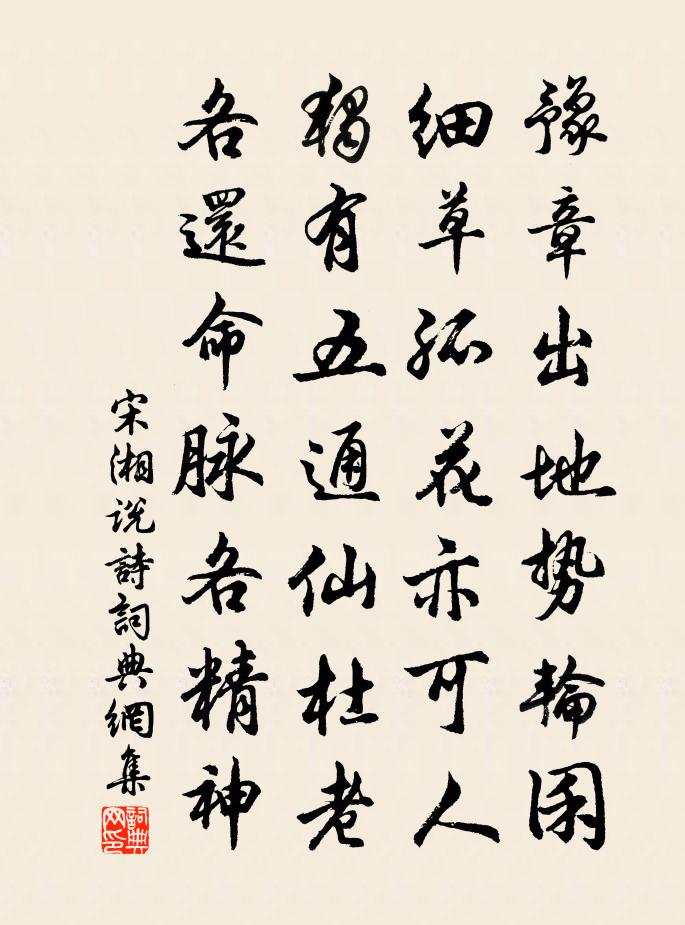 豫章出地势輪囷
细草孤花亦可人
獨有五通仙杜老
各還命脉各精神
宋湘说詩詞典網集
詞典網印